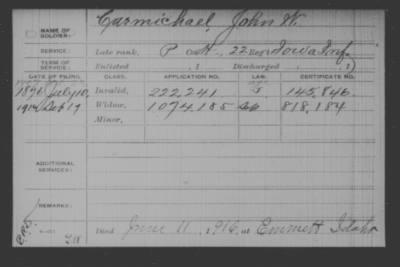 NAME OF SOLDIER: Carmichael, John W.
SERVICE: Late rank, P Co. 22 Reg't Iowa Inf.
TERM OF SERVICE: Enlisted , 1 Discharged , 1
DATE OF FILING. CLASS. APPLICATION NO. LAW. CERTIFICATE NO.
1876 July 10, Invalid, 222.241 145.846
1916 Sep 19 Widow, 1074.185 818.184
Minor,
ADDITIONAL SERVICES:
REMARKS:
Died June 11, 1916, at Emmett Idaho